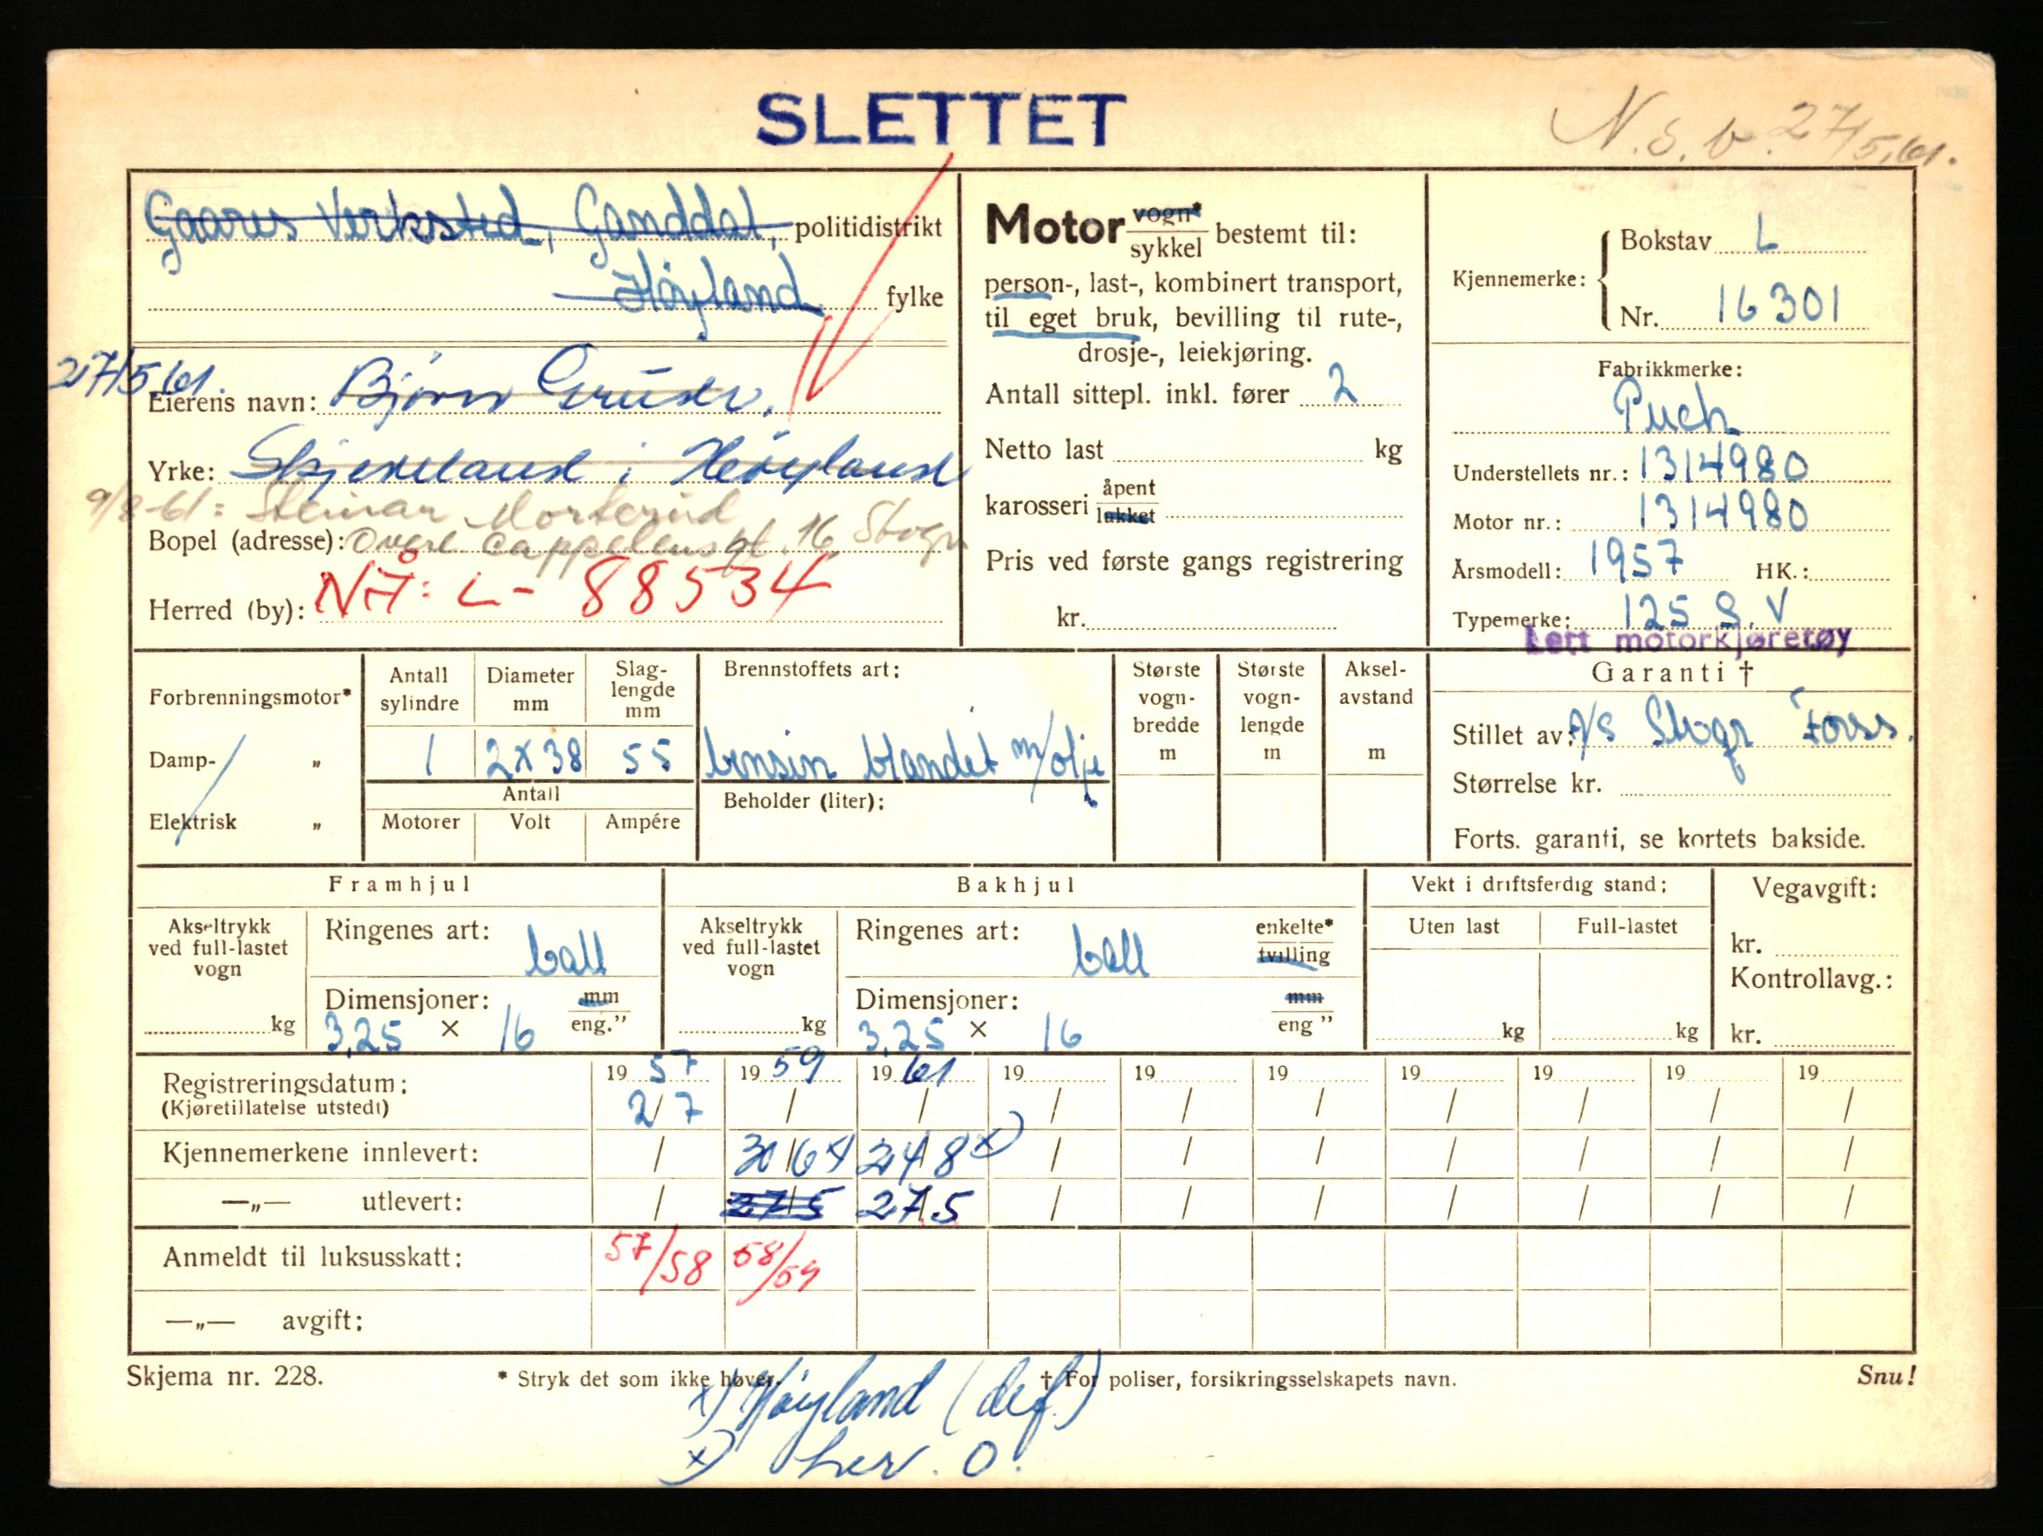 SLETTET
N.S.V. 27/5.61.
Gaares Verksted, Ganddal, politidistrikt
Høyland fylke
27/5.61.
Eierens navn: Bjørn
Yrke: Skjæveland i Høyland
9/8-61: Steinar Morterud
Bopel (adresse): Øvere Cappelensgt. 16, Stvgr
Herred (by): NÅ: L- 88534
Motor vogn* sykkel bestemt til:
person-, last-, kombinert transport,
til eget bruk, bevilling til rute-,
drosje-, leiekjøring.
Antall sittepl. inkl. fører 2
Netto last kg
karosseri åpent lukket
Pris ved første gangs registrering
kr.
Kjennemerke: Bokstav L
Nr. 16301
Fabrikkmerke:
Puch
Understellets nr.: 1314980
Motor nr.: 1314980
Årsmodell: 1957 HK.:
Typemerke: 125 S.V
Lett motorkjøretøy
Forbrenningsmotor*
Damp- „
Elektrisk „
Antall sylindre
Diameter mm
Slag-lengde mm
1 2x38 55
Antall
Motorer Volt Ampére
Brennstoffets art:
bensin blandet m/olje
Beholder (liter):
Største vogn-bredde m
Største vogn-lengde m
Aksel-avstand m
Garanti †
Stillet av: A/S Stvgr Forss.
Størrelse kr.
Forts. garanti, se kortets bakside.
Framhjul
Akseltrykk ved full-lastet vogn
kg
Ringenes art: ball
Dimensjoner: mm
3,25 × 16 eng.”
Bakhjul
Akseltrykk ved full-lastet vogn
kg
Ringenes art: ball enkelte* tvilling
Dimensjoner: mm
3,25 × 16 eng ”
Vekt i driftsferdig stand:
Uten last Full-lastet
kg kg
Vegavgift:
kr.
Kontrollavg.:
kr.
Registreringsdatum: 19 57 19 59 19 61 19 19 19 19 19 19 19
(Kjøretillatelse utstedt) 2/7 / / / / / / / / /
Kjennemerkene innlevert: / 30/6 x) 24/8 x) / / / / / / /
—„— utlevert: / 27/5 27/5 / / / / / / /
Anmeldt til luksusskatt: 57/58 58/59
—„— avgift:
Skjema nr. 228.
* Stryk det som ikke høver.
† For poliser, forsikringsselskapets navn.
Snu!
x) Høyland (def.)
x) Lev. O.